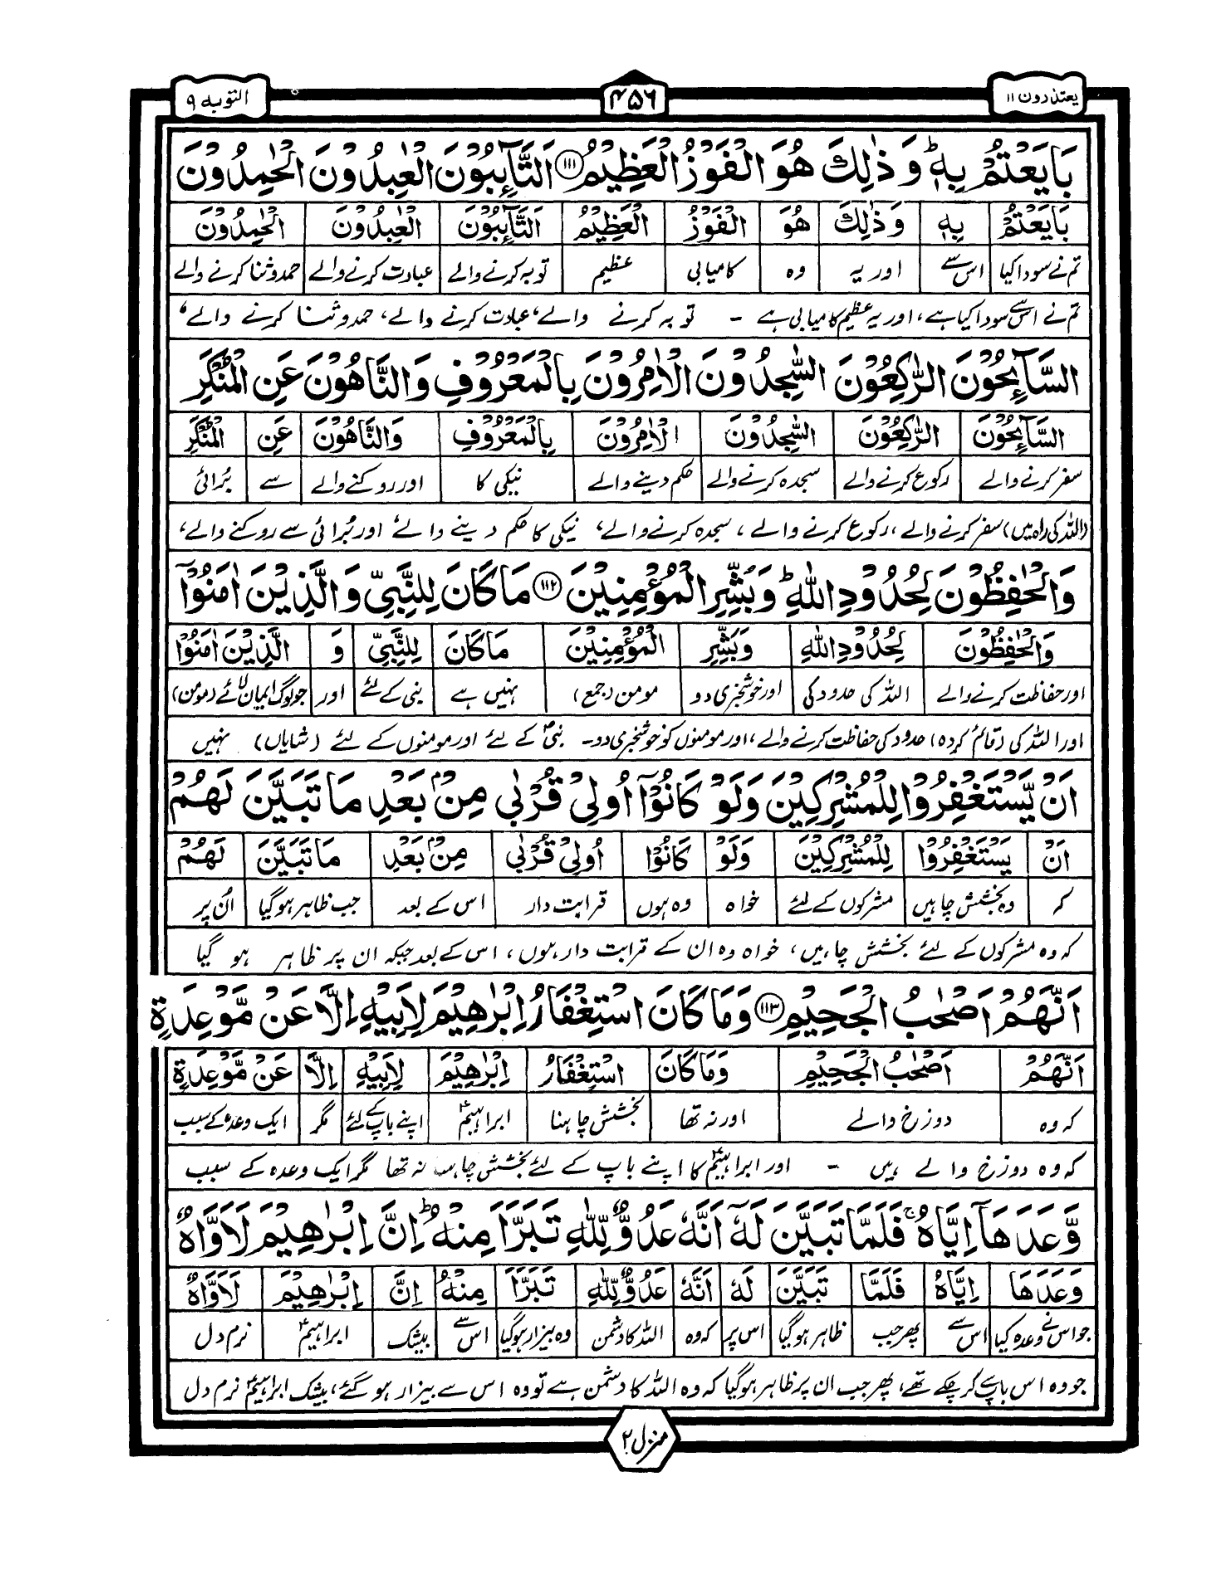 یعتذرون ۱۱
۴۵۶
التوبه ۹
بَايَعْتُمْ بِهٖ ؕ وَ ذٰلِكَ هُوَ الْفَوْزُ الْعَظِيْمُ ۝۱۱۱ اَلتَّآئِبُوْنَ الْعٰبِدُوْنَ الْحٰمِدُوْنَ
بَايَعْتُمْ بِهٖ وَذٰلِكَ هُوَ الْفَوْزُ الْعَظِيْمُ اَلتَّآئِبُوْنَ الْعٰبِدُوْنَ الْحٰمِدُوْنَ
تم نے سودا کیا اس سے اور یہ وہ کامیابی عظیم توبہ کرنے والے عبادت کرنے والے حمد و ثنا کرنے والے
تم نے اس سے سودا کیا ہے، اور یہ عظیم کامیابی ہے - توبہ کرنے والے، عبادت کرنے والے، حمد و ثنا کرنے والے،
السَّآئِحُوْنَ الرّٰكِعُوْنَ السّٰجِدُوْنَ الْاٰمِرُوْنَ بِالْمَعْرُوْفِ وَالنَّاهُوْنَ عَنِ الْمُنْكَرِ
السَّآئِحُوْنَ الرّٰكِعُوْنَ السّٰجِدُوْنَ الْاٰمِرُوْنَ بِالْمَعْرُوْفِ وَالنَّاهُوْنَ عَنِ الْمُنْكَرِ
سفر کرنے والے رکوع کرنے والے سجدہ کرنے والے حکم دینے والے نیکی کا اور روکنے والے سے بُرائی
(اللہ کی راہ میں) سفر کرنے والے، رکوع کرنے والے، سجدہ کرنے والے، نیکی کا حکم دینے والے اور بُرائی سے روکنے والے،
وَالْحٰفِظُوْنَ لِحُدُوْدِ اللّٰهِ ؕ وَبَشِّرِ الْمُؤْمِنِيْنَ ۝۱۱۲ مَا كَانَ لِلنَّبِيِّ وَالَّذِيْنَ اٰمَنُوْۤا
وَالْحٰفِظُوْنَ لِحُدُوْدِ اللّٰهِ وَبَشِّرِ الْمُؤْمِنِيْنَ مَا كَانَ لِلنَّبِيِّ وَ الَّذِيْنَ اٰمَنُوْۤا
اور حفاظت کرنے والے اللہ کی حدود کی اور خوشخبری دو مومن (جمع) نہیں ہے نبی کے لئے اور جو لوگ ایمان لائے (مومن)
اور اللہ کی (قائم کردہ) حدود کی حفاظت کرنے والے، اور مومنوں کو خوشخبری دو- نبیؐ کے لئے اور مومنوں کے لئے (شایاں) نہیں
اَنْ يَّسْتَغْفِرُوْا لِلْمُشْرِكِيْنَ وَلَوْ كَانُوْۤا اُولِيْ قُرْبٰى مِنْۢ بَعْدِ مَا تَبَيَّنَ لَهُمْ
اَنْ يَّسْتَغْفِرُوْا لِلْمُشْرِكِيْنَ وَلَوْ كَانُوْۤا اُولِيْ قُرْبٰى مِنْۢ بَعْدِ مَا تَبَيَّنَ لَهُمْ
کہ وہ بخشش چاہیں مشرکوں کے لئے خواہ وہ ہوں قرابت دار اس کے بعد جب ظاہر ہوگیا اُن پر
کہ وہ مشرکوں کے لئے بخشش چاہیں، خواہ وہ ان کے قرابت دار ہوں، اس کے بعد جبکہ ان پر ظاہر ہو گیا
اَنَّهُمْ اَصْحٰبُ الْجَحِيْمِ ۝۱۱۳ وَمَا كَانَ اسْتِغْفَارُ اِبْرٰهِيْمَ لِاَبِيْهِ اِلَّا عَنْ مَّوْعِدَةٍ
اَنَّهُمْ اَصْحٰبُ الْجَحِيْمِ وَمَا كَانَ اسْتِغْفَارُ اِبْرٰهِيْمَ لِاَبِيْهِ اِلَّا عَنْ مَّوْعِدَةٍ
کہ وہ دوزخ والے اور نہ تھا بخشش چاہنا ابراہیمؑ اپنے باپ کے لئے مگر ایک وعدہ کے سبب
کہ وہ دوزخ والے ہیں - اور ابراہیمؑ کا اپنے باپ کے لئے بخشش چاہنا نہ تھا مگر ایک وعدہ کے سبب
وَّعَدَهَاۤ اِيَّاهُ ۚ فَلَمَّا تَبَيَّنَ لَهٗۤ اَنَّهٗ عَدُوٌّ لِّلّٰهِ تَبَرَّاَ مِنْهُ ؕ اِنَّ اِبْرٰهِيْمَ لَاَوَّاهٌ
وَعَدَهَا اِيَّاهُ فَلَمَّا تَبَيَّنَ لَهٗ اَنَّهٗ عَدُوٌّ لِّلّٰهِ تَبَرَّاَ مِنْهُ اِنَّ اِبْرٰهِيْمَ لَاَوَّاهٌ
جو اس نے وعدہ کیا اس سے پھر جب ظاہر ہوگیا اس پر کہ وہ اللہ کا دشمن وہ بیزار ہوگیا اس سے بیشک ابراہیمؑ نرم دل
جو وہ اس باپ سے کر چکے تھے، پھر جب ان پر ظاہر ہوگیا کہ وہ اللہ کا دشمن ہے تو وہ اس سے بیزار ہو گئے، بیشک ابراہیمؑ نرم دل
منزل ۲